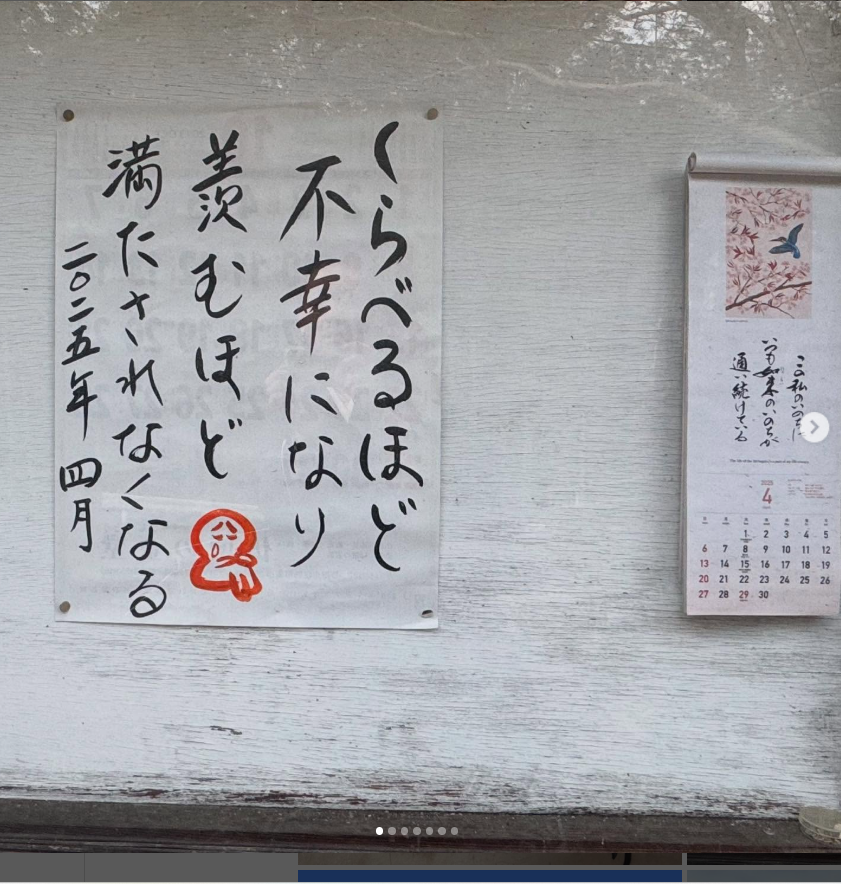 くらべるほど
不幸になり
羨むほど
満たされなくなる
二〇二五年 四月
この私のいのちは
いつも如来のいのちが
通い続けている
2025
4
1 2 3 4 5
6 7 8 9 10 11 12
13 14 15 16 17 18 19
20 21 22 23 24 25 26
27 28 29 30